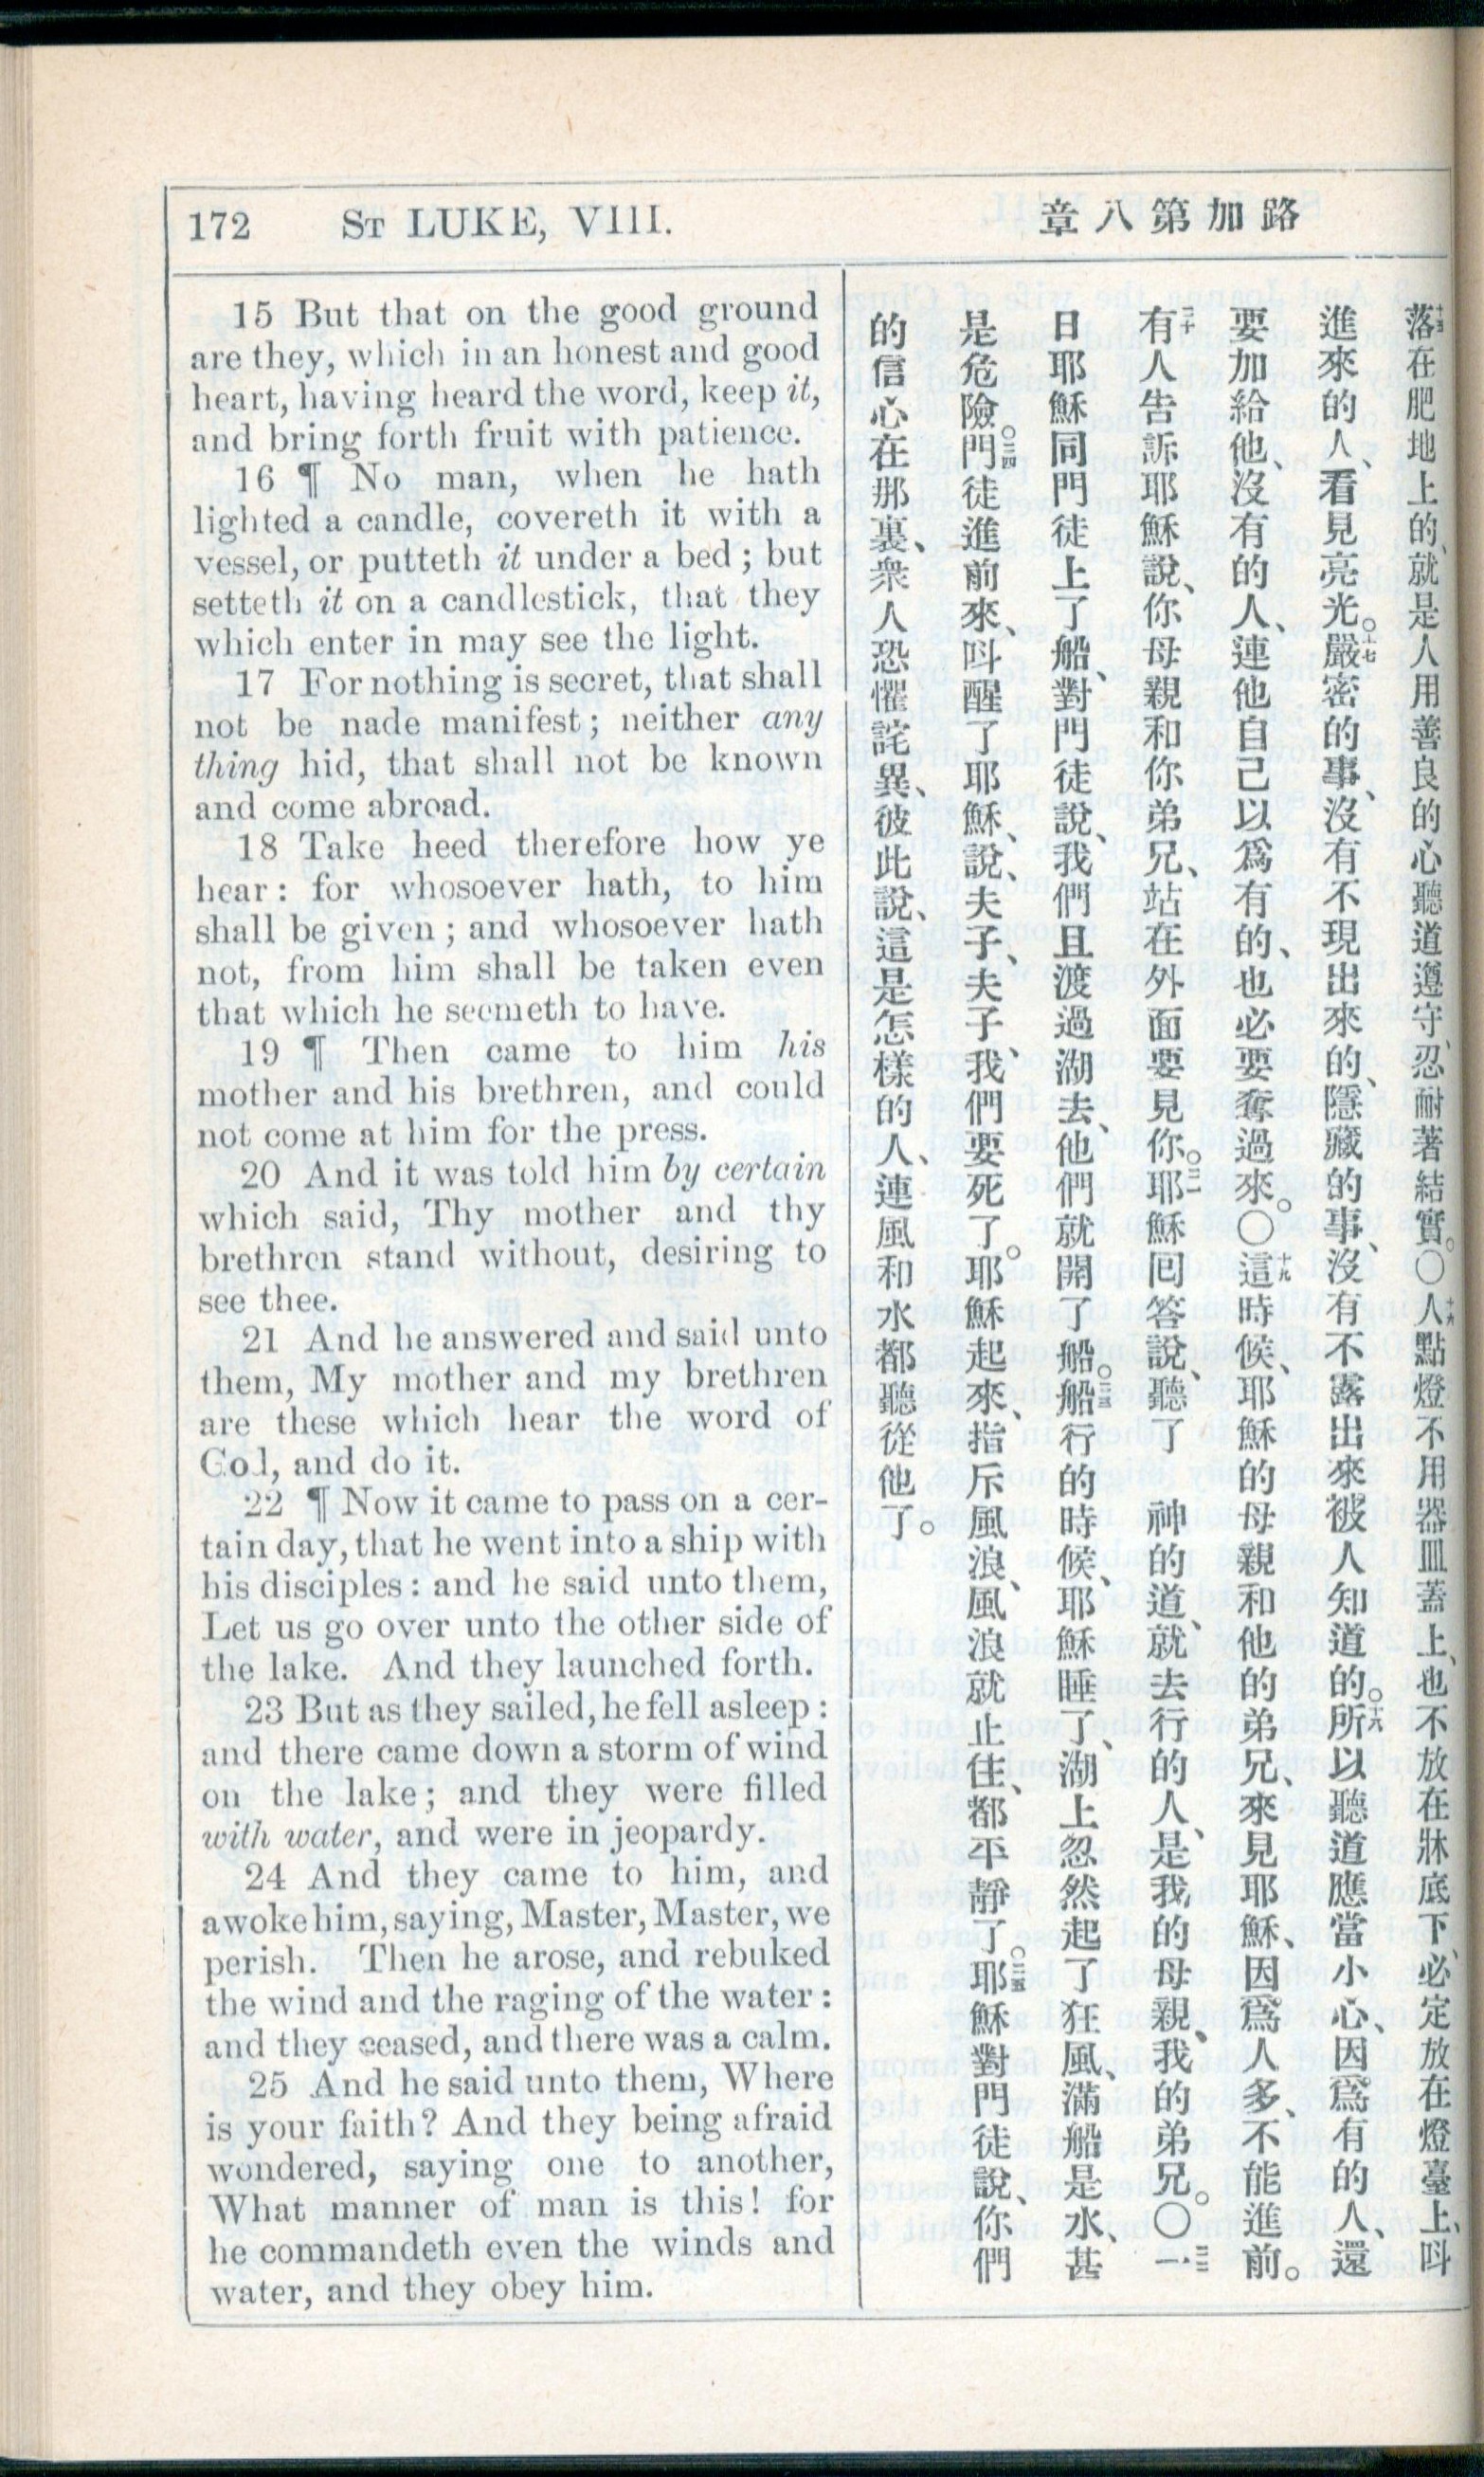 172 ST LUKE, VIII.
章八第加路
15 But that on the good ground
are they, which in an honest and good
heart, having heard the word, keep it,
and bring forth fruit with patience.
16 ¶ No man, when he hath
lighted a candle, covereth it with a
vessel, or putteth it under a bed; but
setteth it on a candlestick, that they
which enter in may see the light.
17 For nothing is secret, that shall
not be nade manifest; neither any
thing hid, that shall not be known
and come abroad.
18 Take heed therefore how ye
hear: for whosoever hath, to him
shall be given; and whosoever hath
not, from him shall be taken even
that which he seemeth to have.
19 ¶ Then came to him his
mother and his brethren, and could
not come at him for the press.
20 And it was told him by certain
which said, Thy mother and thy
brethren stand without, desiring to
see thee.
21 And he answered and said unto
them, My mother and my brethren
are these which hear the word of
God, and do it.
22 ¶ Now it came to pass on a cer-
tain day, that he went into a ship with
his disciples: and he said unto them,
Let us go over unto the other side of
the lake. And they launched forth.
23 But as they sailed, he fell asleep:
and there came down a storm of wind
on the lake; and they were filled
with water, and were in jeopardy.
24 And they came to him, and
awoke him, saying, Master, Master, we
perish. Then he arose, and rebuked
the wind and the raging of the water:
and they ceased, and there was a calm.
25 And he said unto them, Where
is your faith? And they being afraid
wondered, saying one to another,
What manner of man is this! for
he commandeth even the winds and
water, and they obey him.
十五落在肥地上的、就是人用善良的心聽道遵守、忍耐著結實。〇十六人點燈不用器皿蓋上、也不放在牀底下、必定放在燈臺上、呌
進來的人、看見亮光。十七嚴密的事、沒有不現出來的、隱藏的事、沒有不露出來被人知道的。十八所以聽道應當小心、因爲有的人、還
要加給他、沒有的人、連他自己以爲有的、也必要奪過來。〇十九這時候、耶穌的母親和他的弟兄、來見耶穌、因爲人多、不能進前。
二十有人告訴耶穌說、你母親和你弟兄、站在外面要見你。二一耶穌回答說、聽了　神的道、就去行的人、是我的母親、我的弟兄。〇二二一
日耶穌同門徒上了船、對門徒說、我們且渡過湖去、他們就開了船。二三船行的時候、耶穌睡了、湖上忽然起了狂風、滿船是水、甚
是危險。二四門徒進前來、呌醒了耶穌、說、夫子、夫子、我們要死了。耶穌起來、指斥風浪、風浪就止住、都平靜了。二五耶穌對門徒說、你們
的信心在那裏、衆人恐懼詫異、彼此說、這是怎樣的人、連風和水都聽從他了。